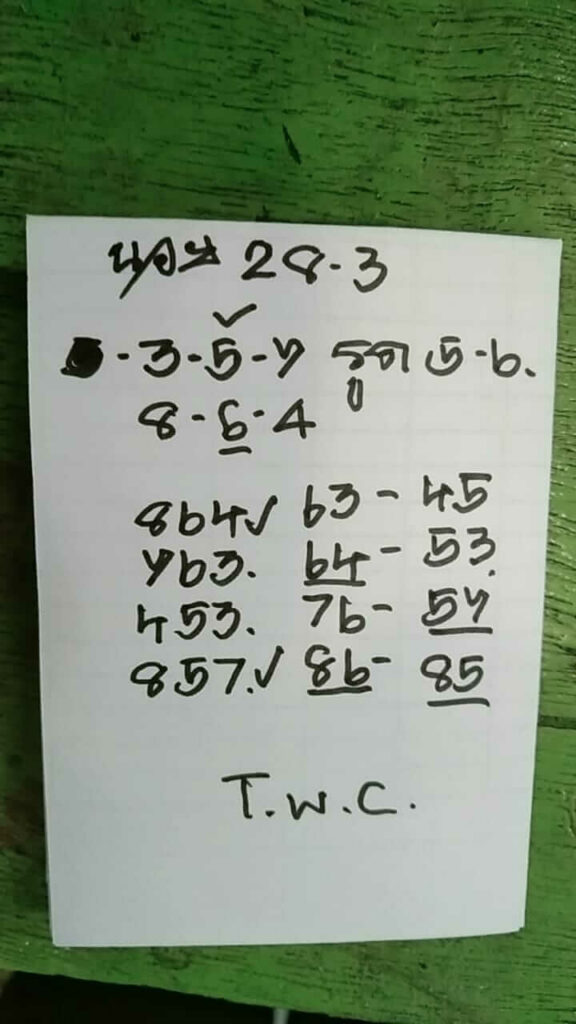 นอย 28-3
✓
-3-5-7 รูด 5-6.
8-6-4
864✓ 63- 45
763. 64- 53.
453. 76- 57
857.✓ 86- 85
T.W.C.